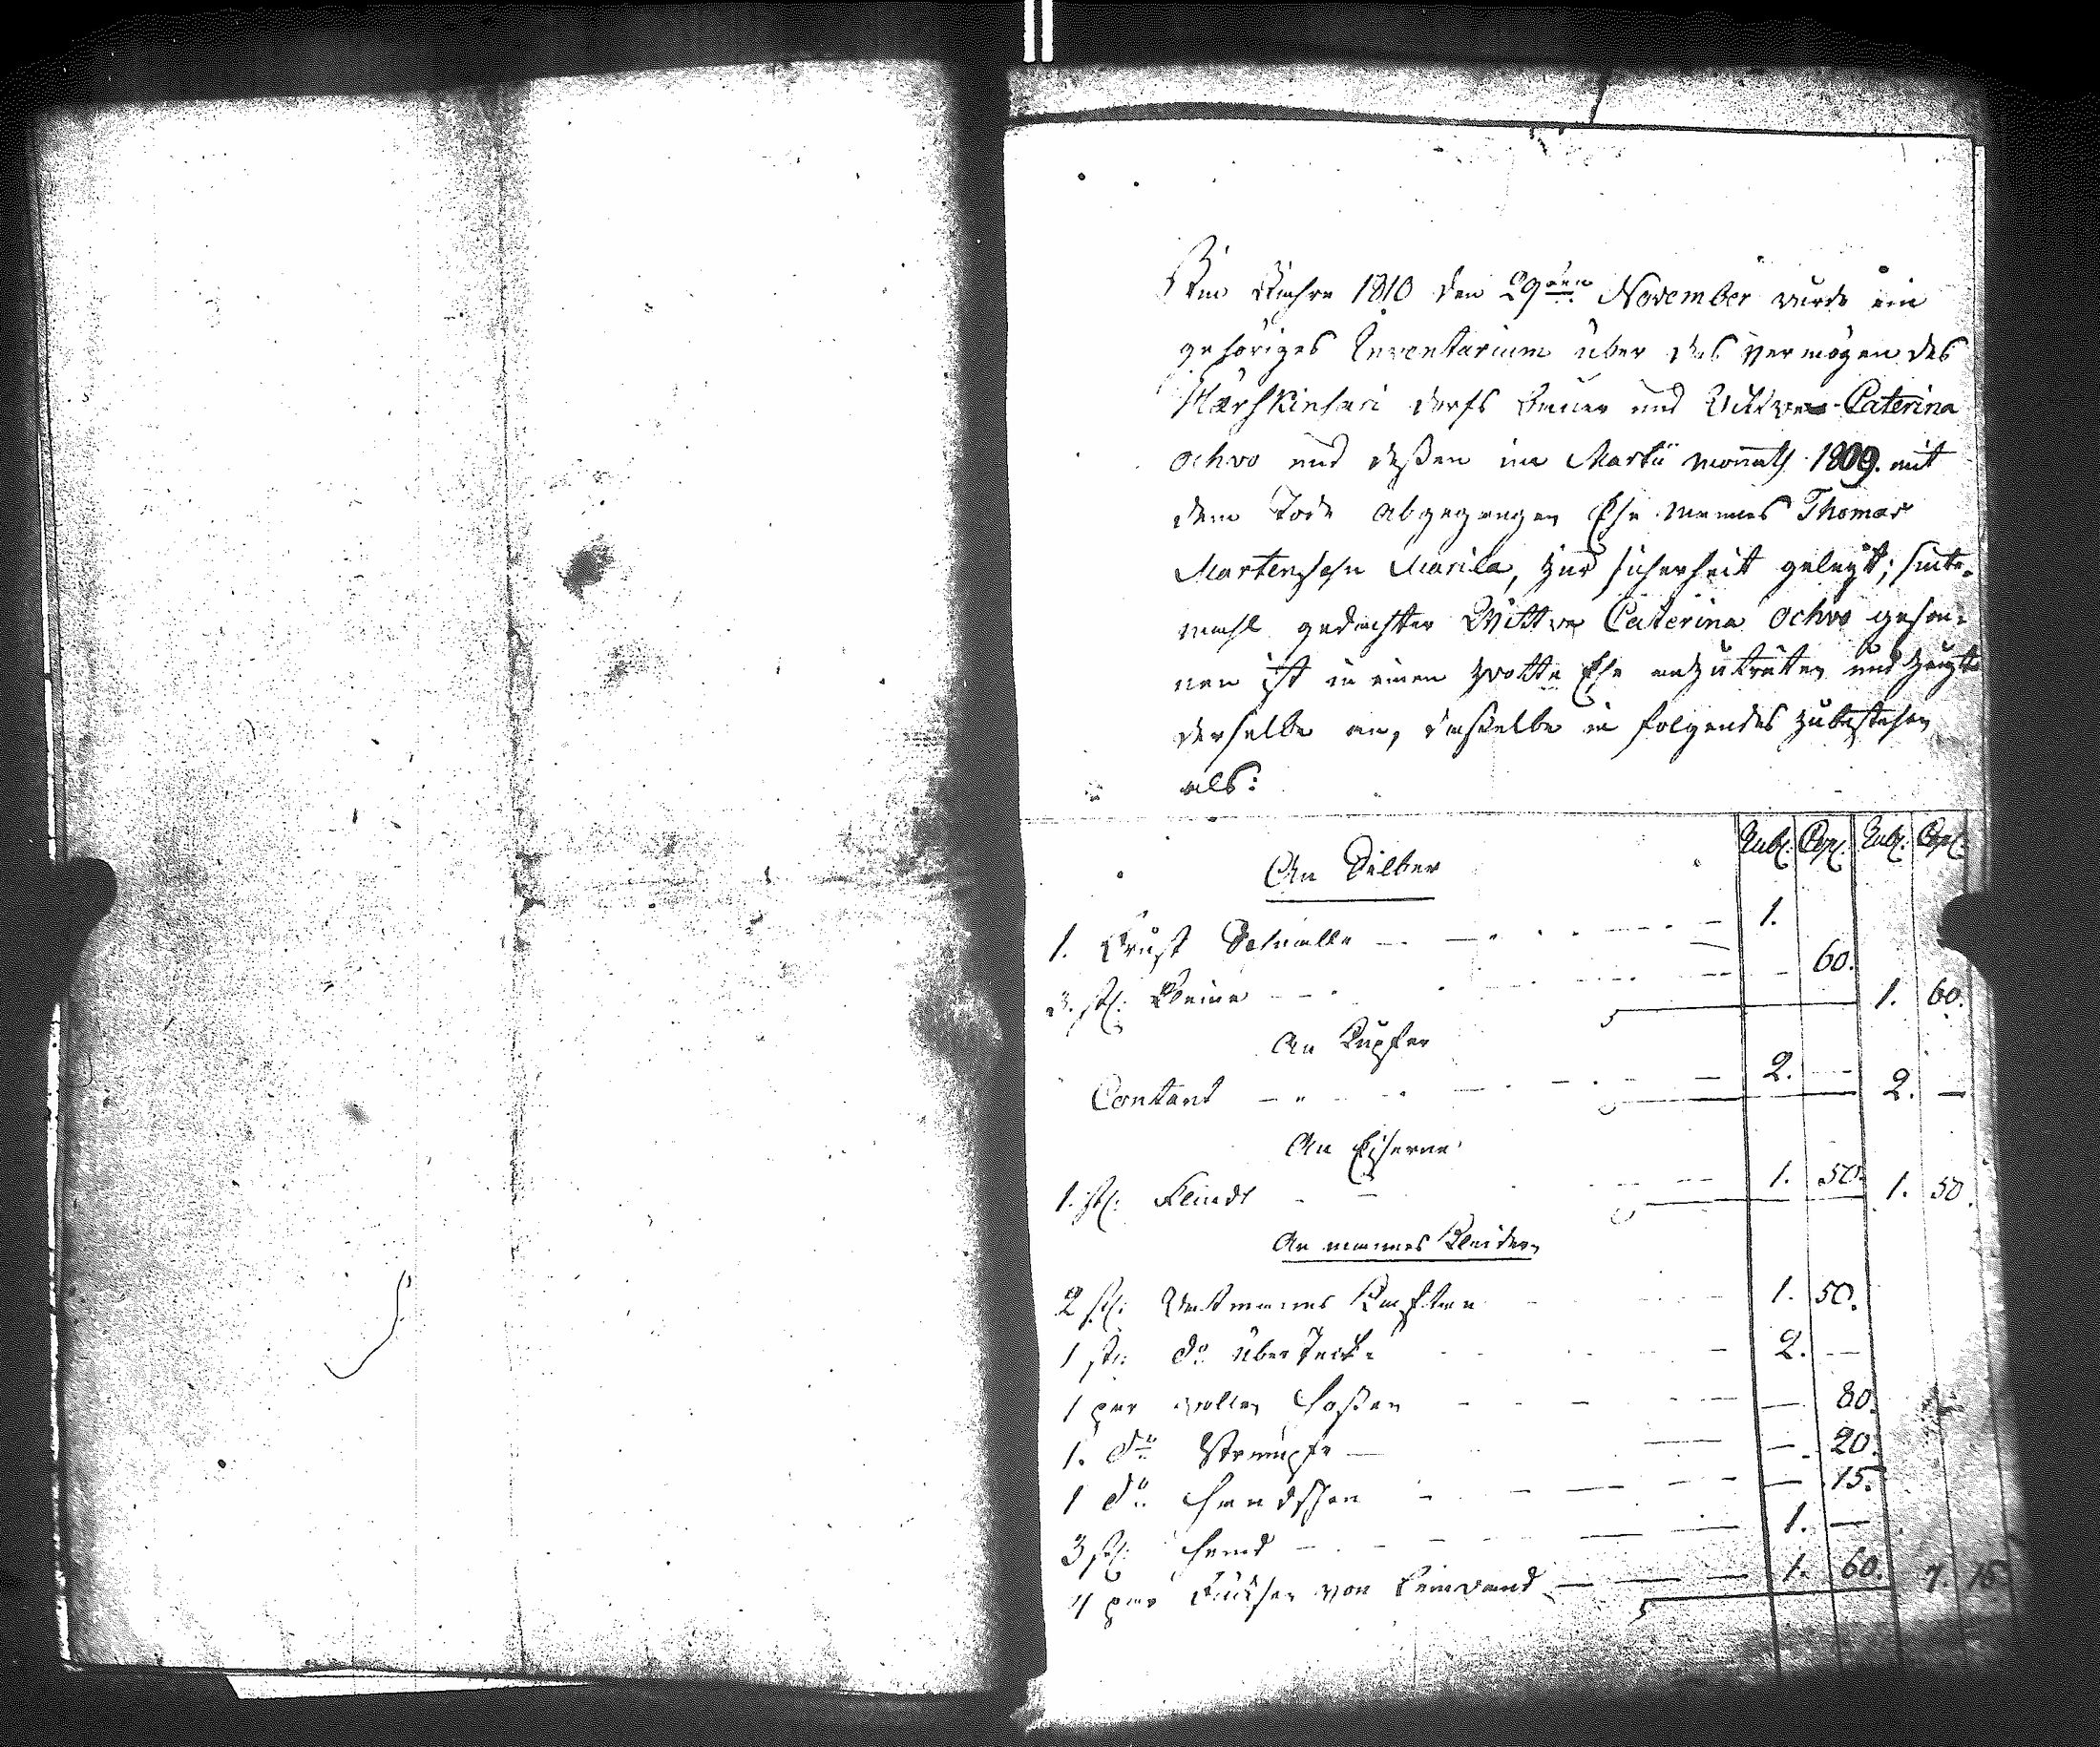 Im Jahre 1810 den 29ten November wurde ein
gehöriges Inventarium über das Vermögen des
dorfs Bauer und Wittwe Caterina
Ochvo und deßen im Martii monath 1809. mit
dem Tode abgegangen Ehe mannes Thomas
Martenssohn Marila, zur sicherheit gelegt; sinte-
mahl gedachter Wittwe Caterina Ochvo geson-
nen ist in einen zwotte Ehe anzuträten und zeugte
derselbe an, dasselbe in folgendes zubestehen
als:
Rubl. Cop. Rubl. Cop.
An Silber
1. Brust Schnalle 1.
3. st. Kleine 60. 1. 60.
An Kupfer
Contant 2. — 2. —
An Eiserne
1. st. 1. 50. 1. 50.
An mannes Kleider
2 st. Watmannes Kaftan 1. 50.
1 st. do über Rock 2. —
1 par wollen Hosen — 80.
1. do Strümpfe — 20.
1 do Handschen — 15.
3 st. Hemd 1. —
4 par von Leinwand 1. 60. 7. 15